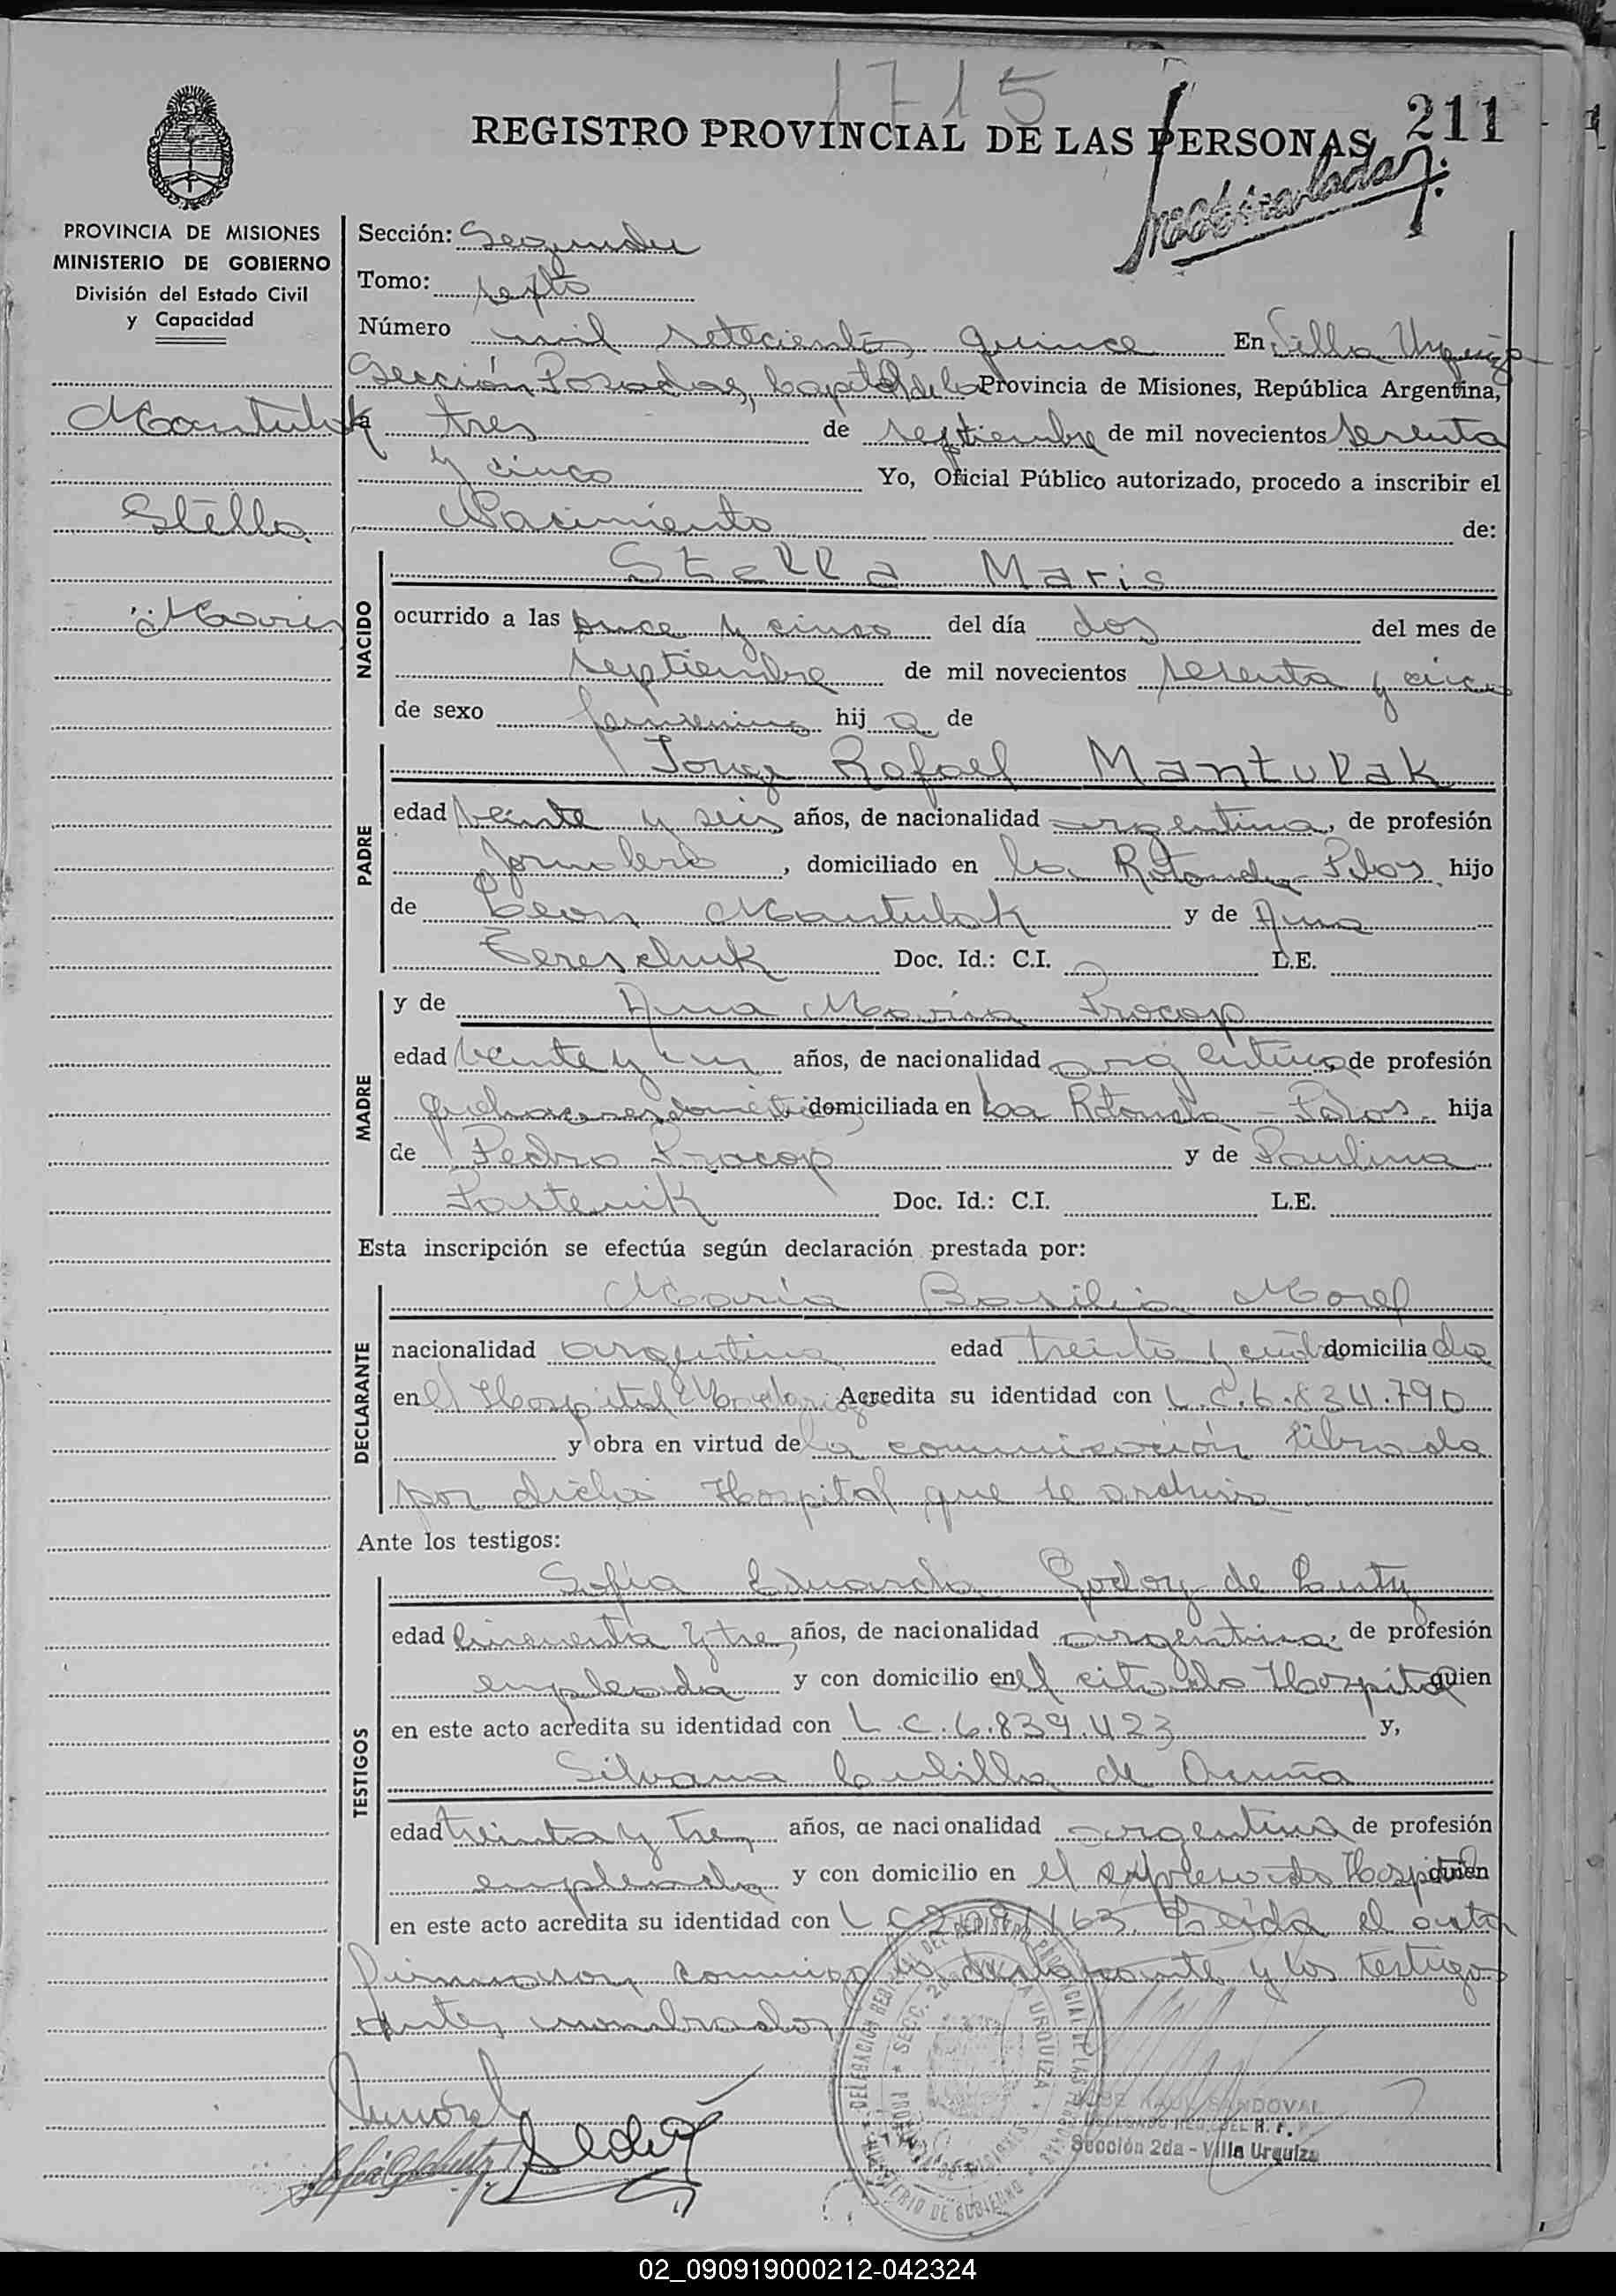 1715
REGISTRO PROVINCIAL DE LAS PERSONAS 211
PROVINCIA DE MISIONES
MINISTERIO DE GOBIERNO
División del Estado Civil
y Capacidad
Mantulak
Stella
Maris
Sección: Segunda
Tomo: sexto
Número mil setecientos quince En Villa Urquiza
Sección Posadas, Capital de la Provincia de Misiones, República Argentina,
a tres de septiembre de mil novecientos sesenta
y cinco Yo, Oficial Público autorizado, procedo a inscribir el
Nacimiento de:
NACIDO
Stella Maris
ocurrido a las once y cinco del día dos del mes de
septiembre de mil novecientos sesenta y cinco
de sexo femenino hija de
PADRE
Jorge Rafael Mantulak
edad veinte y seis años, de nacionalidad argentina, de profesión
jornalero, domiciliado en la Rotonda - Pdas hijo
de Leon Mantulak y de Ana
Tereschuk Doc. Id.: C.I. L.E.
MADRE
y de Ana María Procop
edad veinte y un años, de nacionalidad argentina, de profesión
quehaceres domésticos, domiciliada en La Rotonda - Pdas. hija
de Pedro Procop y de Paulina
Doc. Id.: C.I. L.E.
Esta inscripción se efectúa según declaración prestada por:
DECLARANTE
María Basilia Morel
nacionalidad argentina edad treinta y domiciliada
en el Hospital Madariaga Acredita su identidad con L.C. 6.834.790
y obra en virtud de la comunicación librada
por dicho Hospital que se archiva
Ante los testigos:
TESTIGOS
Sofía Eduarda Godoy de
edad cincuenta y tres años, de nacionalidad argentina, de profesión
empleada y con domicilio en el citado Hospital quien
en este acto acredita su identidad con L.C. 6.839.423 y,
Silvana Cubilla de Acuña
edad treinta y tres años, de nacionalidad argentina de profesión
empleada y con domicilio en el expresado Hospital quien
en este acto acredita su identidad con L.C. Leída el acta
firmaron conmigo la declarante y los testigos
antes nombrados
SANDOVAL
Sección 2da - Villa Urquiza
02_090919000212-042324